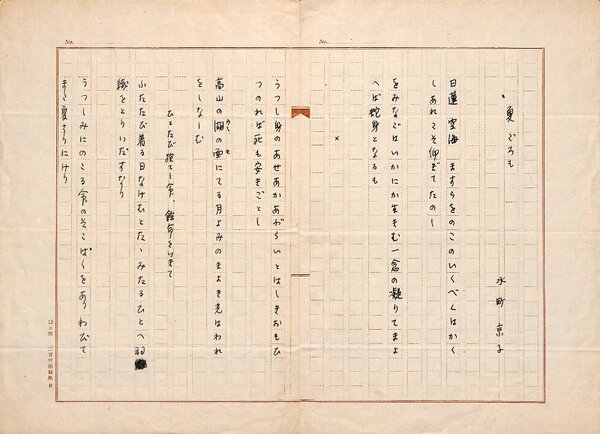 夏ごろも
水町京子
日蓮 空海 ますらをのこのいくべくはかく
しあれこそ仰ぎてたのし
をみなごはいかにか生きむ一念の凝りてまよ
へば蛇身となるも
×
うつし身のあせあかあがらいとはしきおもひ
つのれば死も安きごとし
高山の湖の面にてる月よみのきよき光はわれ
をしなしむ
ひとたび捨てし命、
ふたたび着る日なけむとたゝみたるひとへ羽
織をとりいだすなり
うつしみにのこる命のそこばくをありわびて
また夏さりにけり
No.
No.